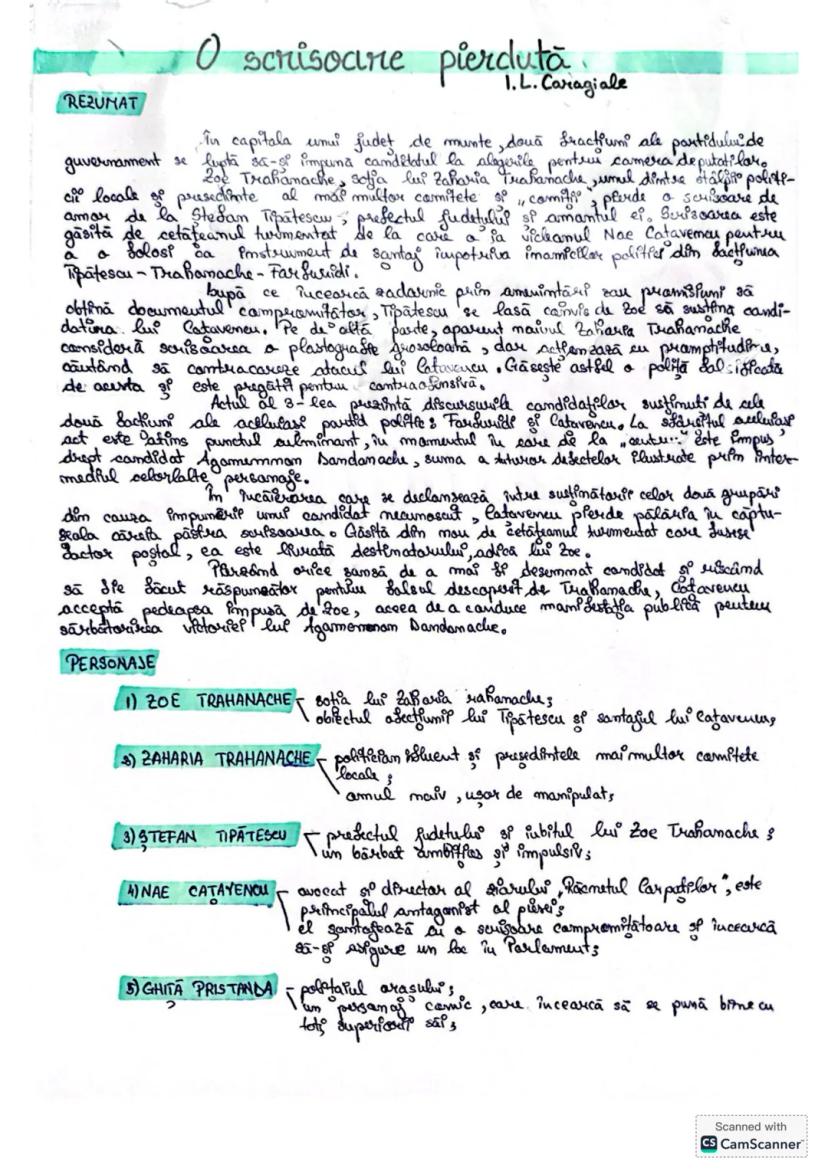 O scrisoare pierdută
I.L. Caragiale
REZUMAT
În capitala unui judeţ de munte, două fracţiuni ale partidului de
guvernământ se luptă să-şi impună candidatul la alegerile pentru camera deputaţilor.
Zoe Trahanache, soţia lui Zaharia Trahanache, unul dintre stâlpii politi-
cii locale şi preşedinte al mai multor comitete şi „comiţii", pierde o scrisoare de
amor de la Ştefan Tipătescu, prefectul judeţului şi amantul ei. Scrisoarea este
găsită de cetăţeanul turmentat de la care o ia vicleanul Nae Caţavencu pentru
a o folosi ca instrument de şantaj împotriva inamicilor politici din facţiunea
Tipătescu - Trahanache - Farfuridi.
După ce încearcă zadarnic prin ameninţări sau promisiuni să
obţină documentul compromiţător, Tipătescu se lasă convins de Zoe să susţină candi-
datura lui Caţavencu. Pe de altă parte, aparent naivul Zaharia Trahanache
consideră scrisoarea o plastografie grosolană, dar acţionează cu promptitudine,
căutând să contracareze atacul lui Caţavencu. Găseşte astfel o poliţă falsificată
de acesta şi este pregătit pentru contraofensivă.
Actul al 3-lea prezintă discursurile candidaţilor susţinuţi de cele
două facţiuni ale aceluiaşi partid politic: Farfuridi şi Caţavencu. La sfârşitul aceluiaşi
act este atins punctul culminant, în momentul în care de la „centru" este impus
drept candidat Agamemnon Dandanache, suma a tuturor defectelor ilustrate prin inter-
mediul celorlalte personaje.
În încăierarea care se declanşează între susţinătorii celor două grupări
din cauza impunerii unui candidat necunoscut, Caţavencu pierde pălăria în captu-
şeala căreia păstra scrisoarea. Găsită din nou de cetăţeanul turmentat care fusese
factor poştal, ea este livrată destinatarului, adică lui Zoe.
Pierzând orice şansă de a mai fi desemnat candidat şi riscând
să fie făcut răspunzător pentru falsul descoperit de Trahanache, Caţavencu
acceptă pedeapsa impusă de Zoe, aceea de a conduce manifestaţia publică pentru
sărbătorirea victoriei lui Agamemnon Dandanache.
PERSONAJE
1) ZOE TRAHANACHE - soţia lui Zaharia rahanache;
obiectul afecţiunii lui Tipătescu şi şantajul lui Caţavencu;
2) ZAHARIA TRAHANACHE - politician influent şi preşedintele mai multor comitete
locale;
omul naiv, uşor de manipulat;
3) ŞTEFAN TIPĂTESCU - prefectul judeţului şi iubitul lui Zoe Trahanache;
un bărbat ambiţios şi impulsiv;
4) NAE CAŢAVENCU - avocat şi director al ziarului „Răcnetul Carpaţilor", este
principalul antagonist al piesei;
el şantajează cu o scrisoare compromiţătoare şi încearcă
să-şi asigure un loc în Parlament;
5) GHIŢĂ PRISTANDA - poliţaiul oraşului;
un personaj comic, care încearcă să se pună bine cu
toţi superiorii săi;
Scanned with
CS CamScanner